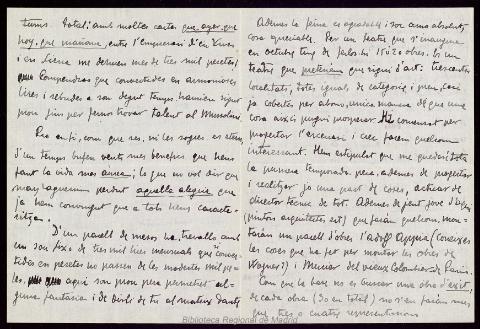 turns. Total: amb moltes cartes que ayer, que
hoy, que mañana, entre l'empresari d'en Lives
i en Siena me deuen mes de tres mil pesetes,
Comprendras que convertides en armonioses
lires i rebudes a son degut temps, hauríen sigut
prou per fernos trovar talent al Mussolini.
Pro en fi, com que res, ni les sogres es etern
d'un temps bufen vents mes benefics que hem
fant la vida mes amea; lo que no vol dir que
may haguessim perdut aquella alegria que
ja hem convingut que a tots hem caracte-
ritza.
D'un parell de mesos ha, treballo amb
un sou fixo de tres mil lires mensuals que conver-
tides en pesetes no passen de les modestes mil pe-
les, aquí son prou pera permetret al-
guna fantasia i de dirli de tu al mateix Dante
Ademes la feina es agradable i soc amo absolut,
cosa apreciable. Per un teatre que s'inaugura
en octubre tinc de ferlos hi 15 o 20 obres. Es un
teatre que pretenien que sigui d'art: trescentes
localitats, totes iguals de categoria i preu, casi
ja cobertes per abono, unica manera de que una
cosa aixis pugui prosperar. He comensat per
projectar l'escenari i crec farem quelcom
interessant. Hem estipulat que me quedaré tota
la primera temporada pera, ademes de projectar
i realitzar ja una part de coses, actuar de
director tecnic de tot. Ademes de gent jove d'aquí
(pintors arquitectes, etc) que faran quelcom, mon-
taran un parell d'obres l'Adolf Appia (coneixes
les coses que ha fet per montar les obres de
Wagner?) i Muriar del vieux Colombier de Paris.
Com que la base no es buscar una obra d'exit,
de cada obra (30 en total) no s'en faran mes
que tres o cuatre representacions
Biblioteca Regional de Madrid